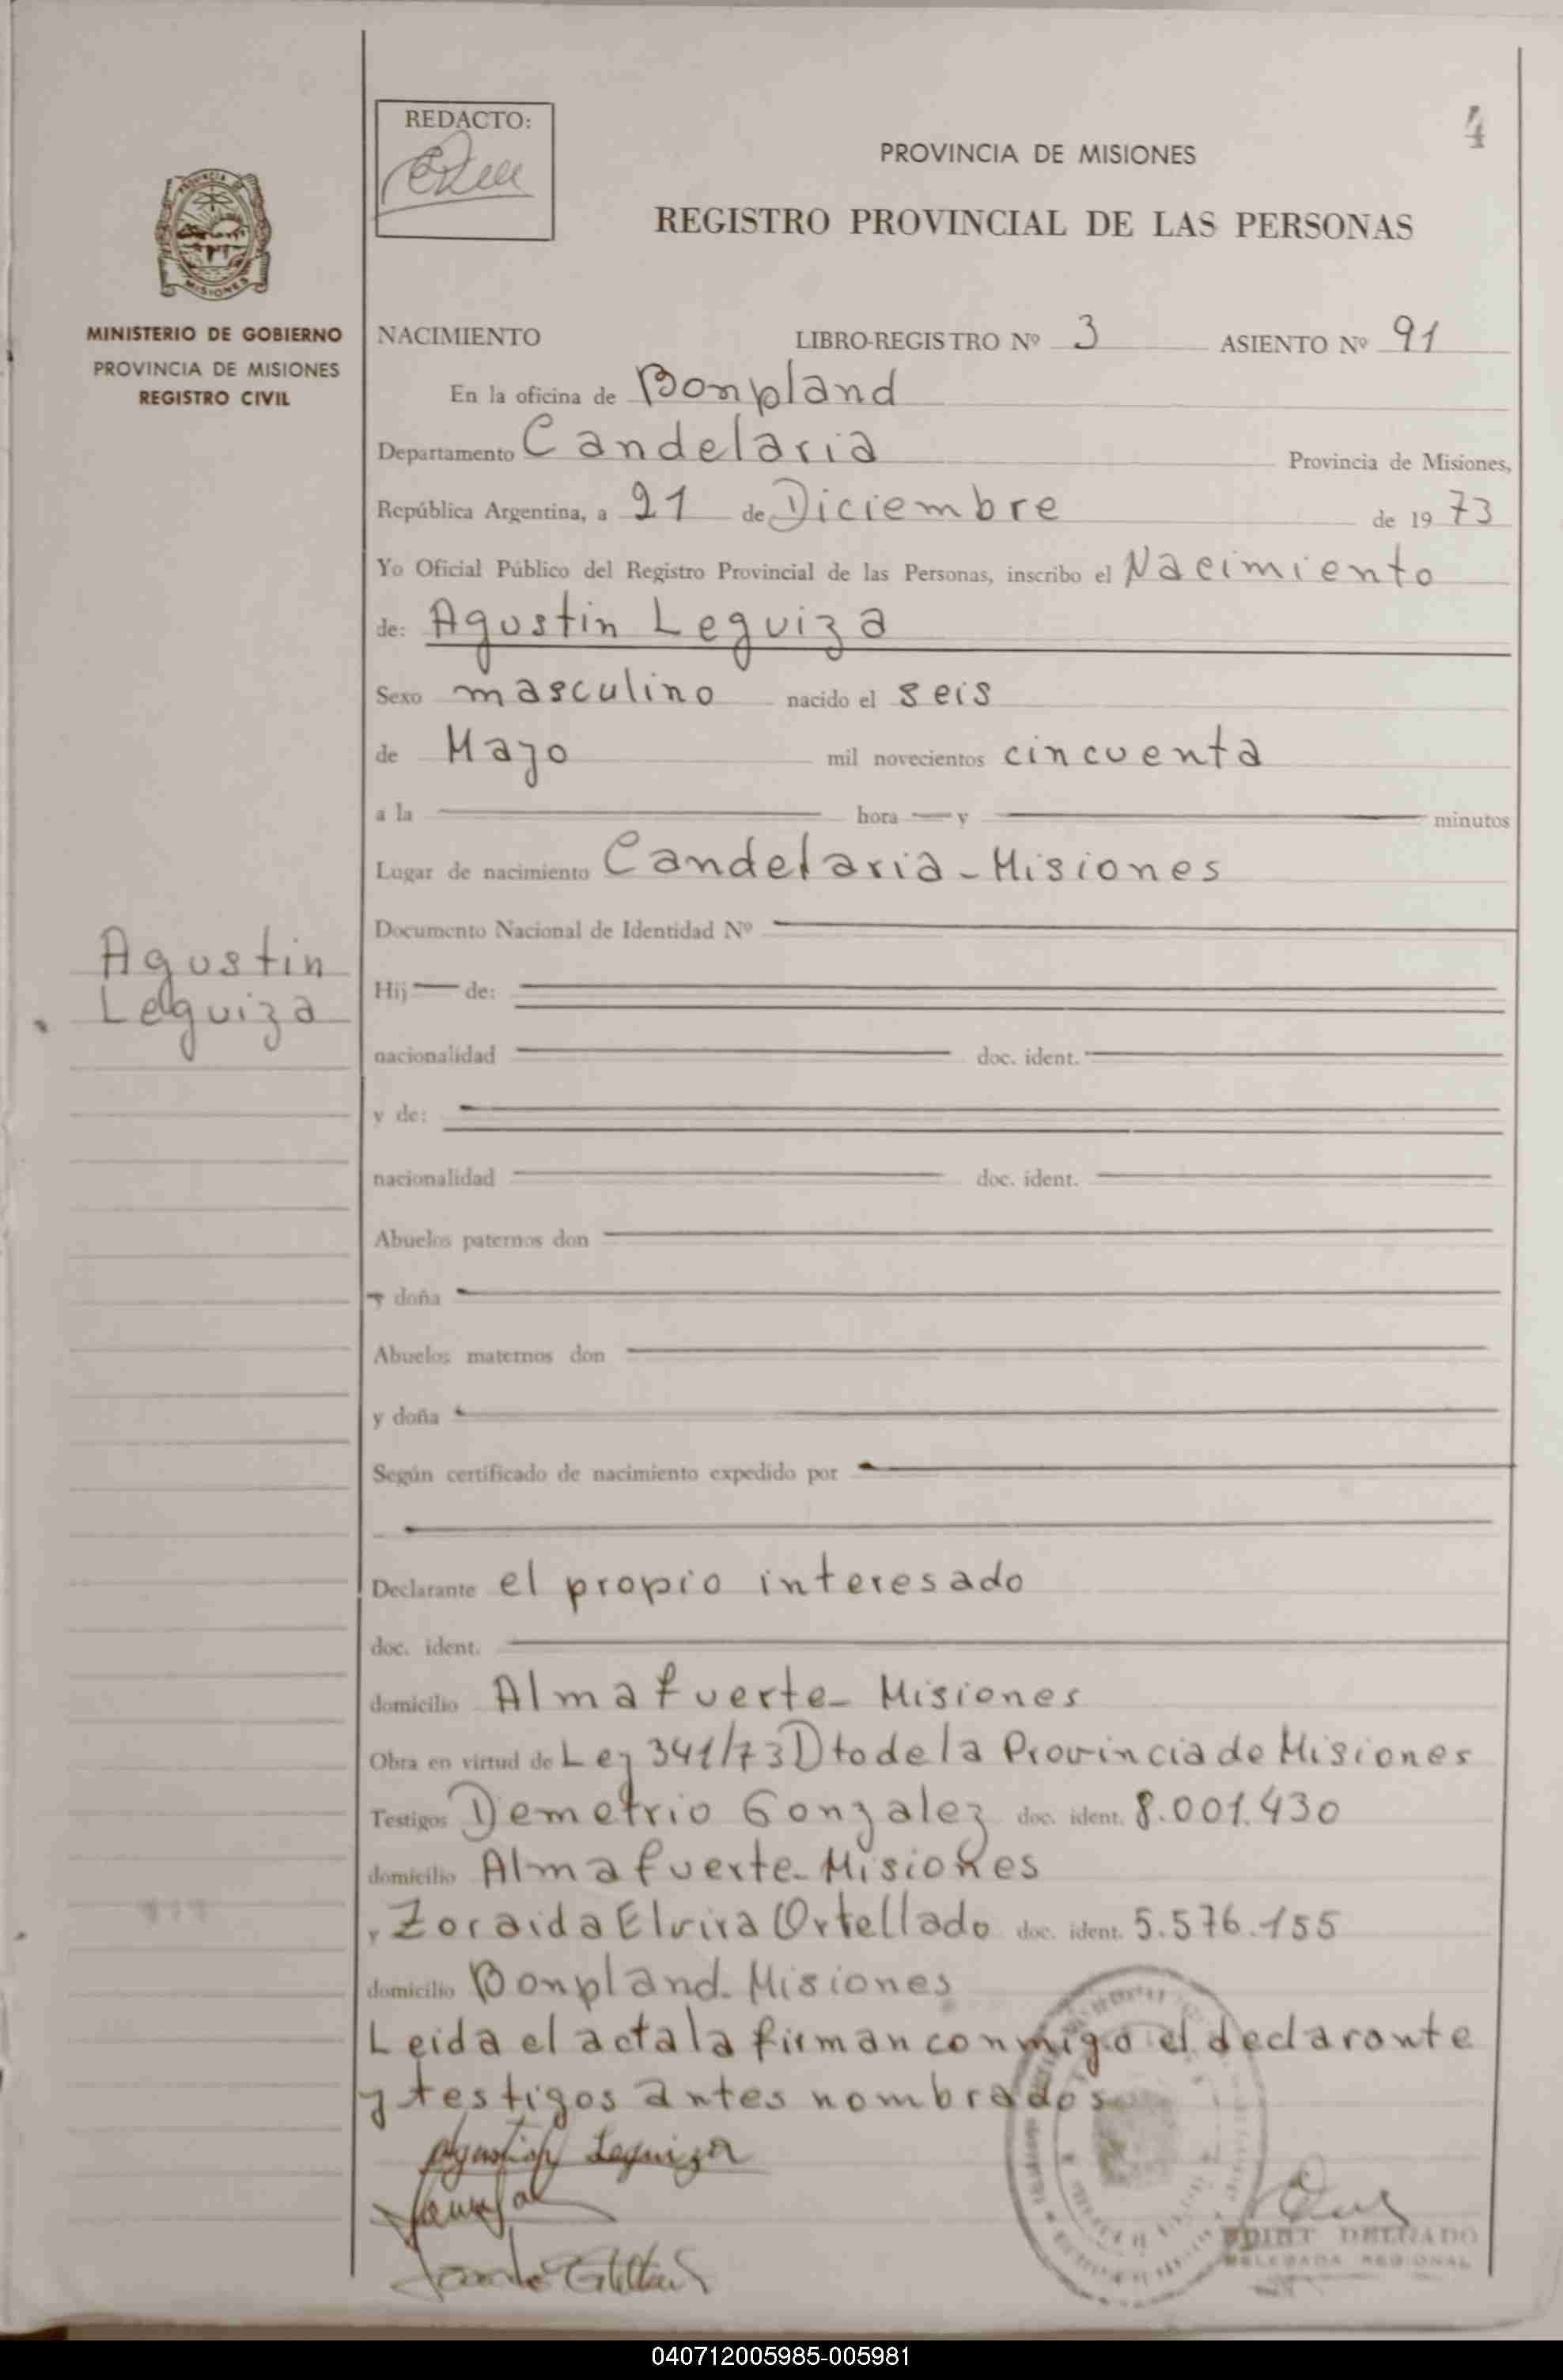 REDACTO:
4
PROVINCIA DE MISIONES
REGISTRO PROVINCIAL DE LAS PERSONAS
PROVINCIA DE
MISIONES
MINISTERIO DE GOBIERNO
PROVINCIA DE MISIONES
REGISTRO CIVIL
NACIMIENTO LIBRO-REGISTRO Nº 3 ASIENTO Nº 91
En la oficina de Bonpland
Departamento Candelaria Provincia de Misiones,
República Argentina, a 21 de Diciembre de 1973
Yo Oficial Público del Registro Provincial de las Personas, inscribo el Nacimiento
de: Agustin Leguiza
Sexo masculino nacido el seis
de Mayo mil novecientos cincuenta
a la hora y minutos
Lugar de nacimiento Candelaria - Misiones
Documento Nacional de Identidad Nº
Agustin
Leguiza
Hij de:
nacionalidad doc. ident.
y de:
nacionalidad doc. ident.
Abuelos paternos don
y doña
Abuelos maternos don
y doña
Según certificado de nacimiento expedido por
Declarante el propio interesado
doc. ident.
domicilio Almafuerte - Misiones
Obra en virtud de Ley 341/73 Dto de la Provincia de Misiones
Testigos Demetrio Gonzalez doc. ident. 8.001.430
domicilio Almafuerte - Misiones
y Zoraida Elvira Ortellado doc. ident. 5.576.155
domicilio Bonpland - Misiones
Leida el acta la firman conmigo el declarante
y testigos antes nombrados
Agustin Leguiza
DELGADO
DELEGADA REGIONAL
040712005985-005981